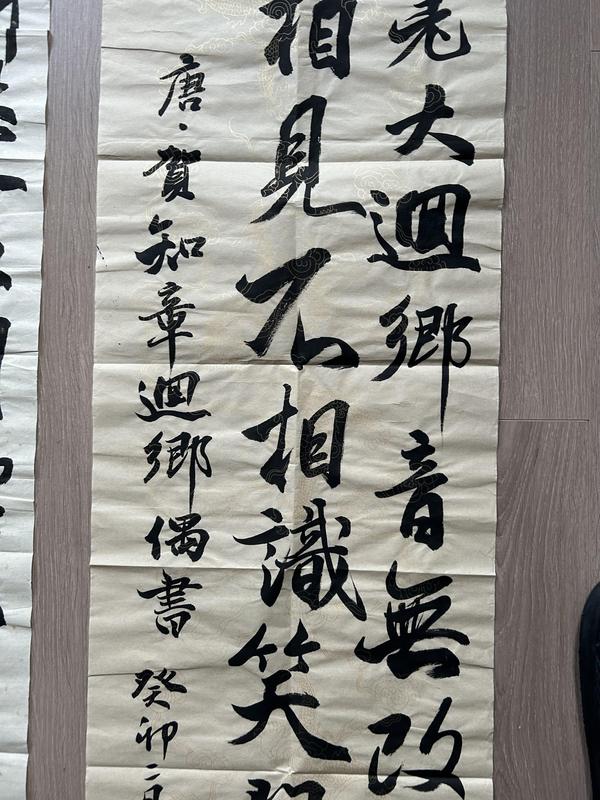 老大迴鄉音無改
相見不相識笑問
唐、賀知章迴鄉偶書 癸卯二月